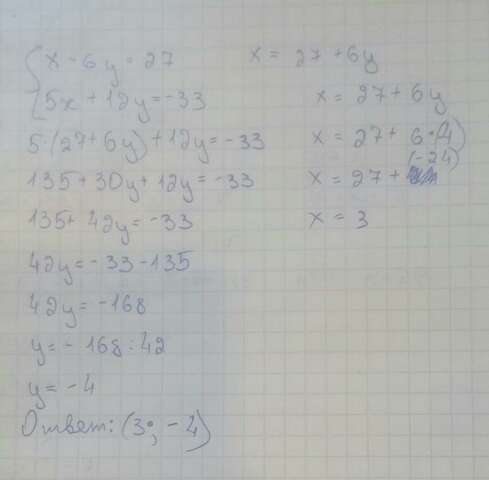 x - 6y = 27
5x + 12y = -33
5·(27+6y) + 12y = -33
135 + 30y + 12y = -33
135 + 42y = -33
42y = -33 - 135
42y = -168
y = -168 : 42
y = -4
Ответ: (3; -4)
x = 27 + 6y
x = 27 + 6y
x = 27 + 6·(4)
(-24)
x = 27 +
x = 3